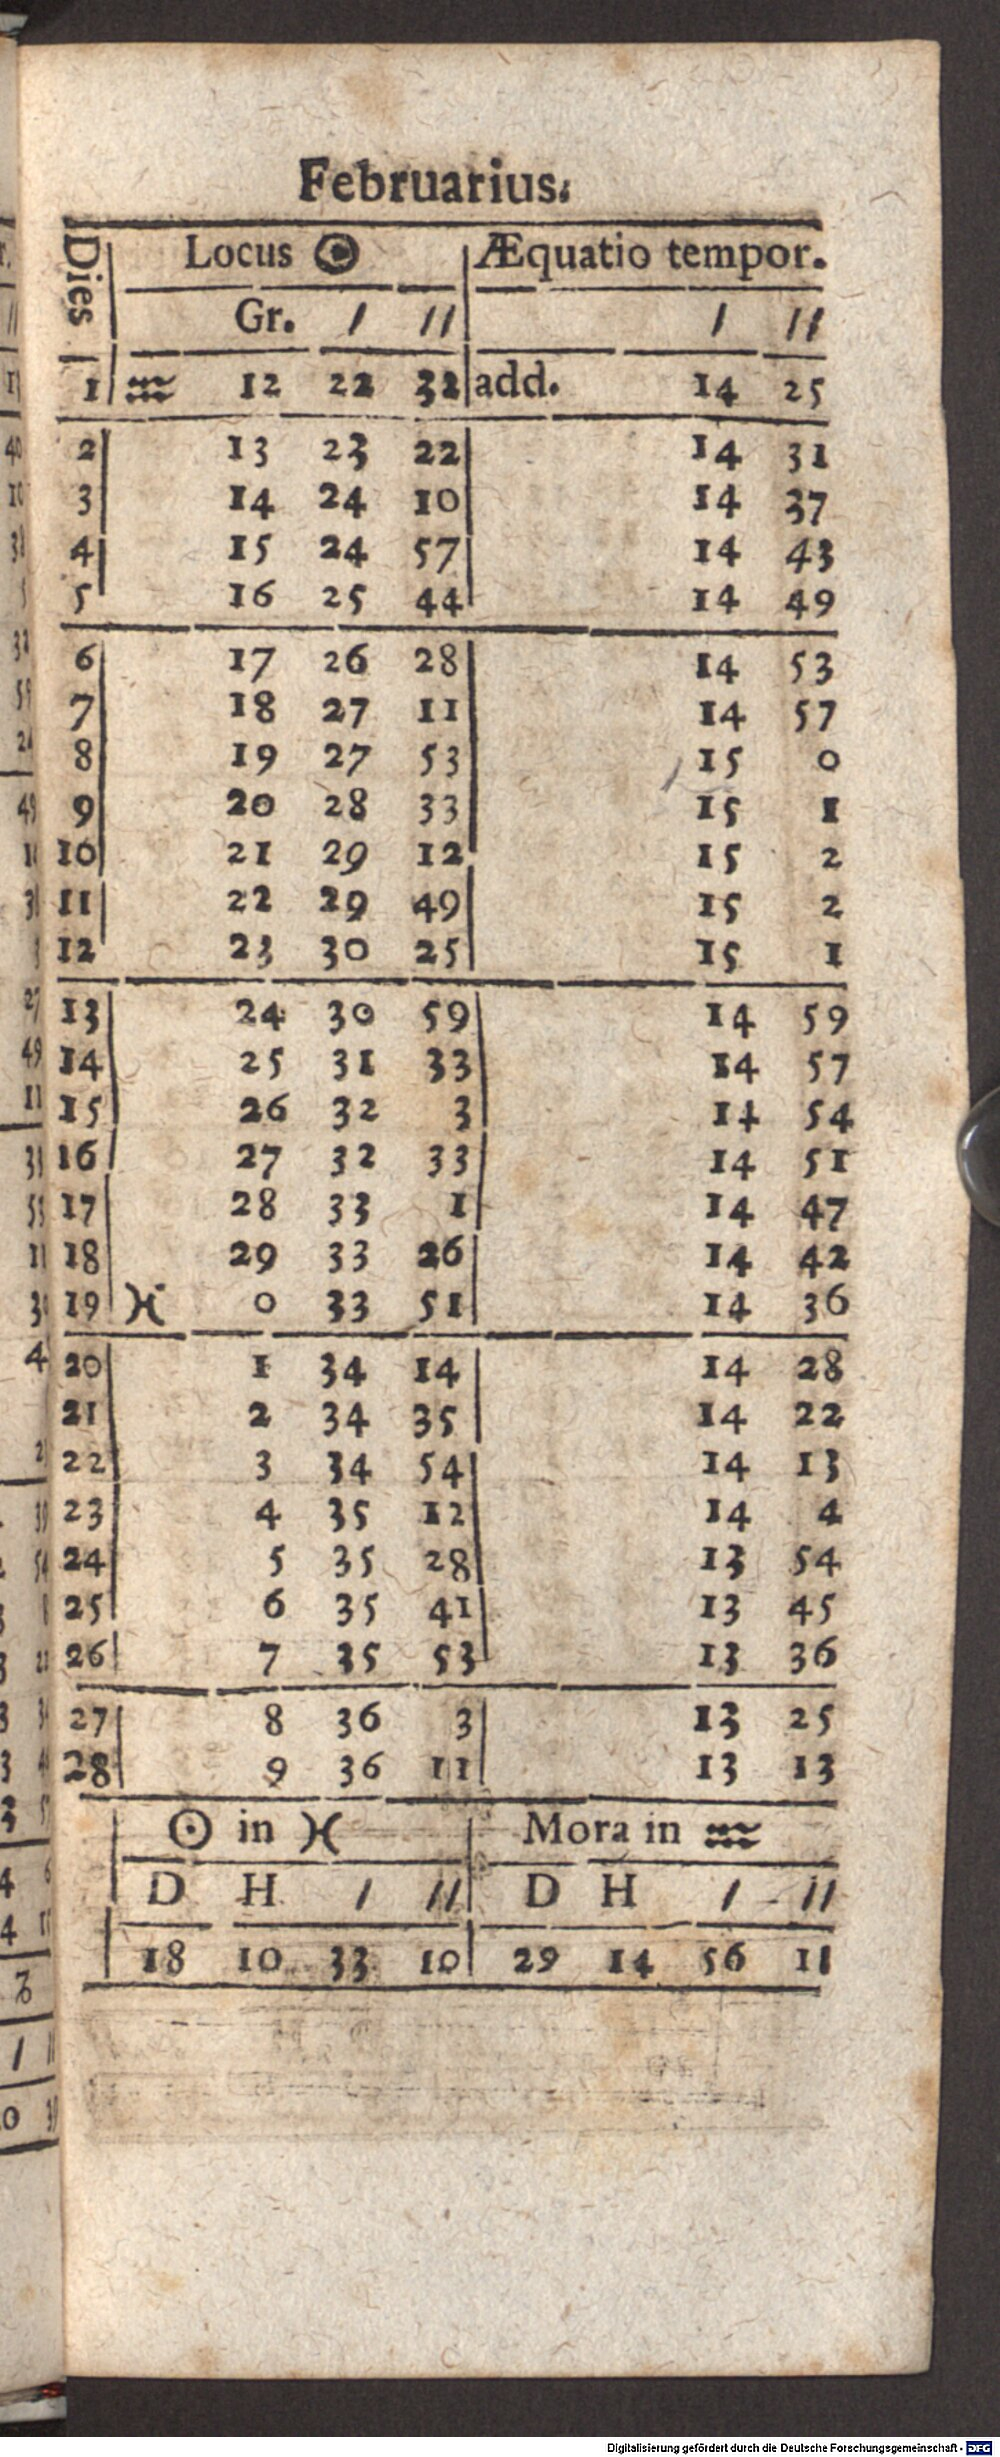 Februarius.
Dies Locus ☉ Æquatio tempor.
Gr. / // / //
1 ♒ 12 22 32 add. 14 25
2 13 23 22 14 31
3 14 24 10 14 37
4 15 24 57 14 43
5 16 25 44 14 49
6 17 26 28 14 53
7 18 27 11 14 57
8 19 27 53 15 0
9 20 28 33 15 1
10 21 29 12 15 2
11 22 29 49 15 2
12 23 30 25 15 1
13 24 30 59 14 59
14 25 31 33 14 57
15 26 32 3 14 54
16 27 32 33 14 51
17 28 33 1 14 47
18 29 33 26 14 42
19 ♓ 0 33 51 14 36
20 1 34 14 14 28
21 2 34 35 14 22
22 3 34 54 14 13
23 4 35 12 14 4
24 5 35 28 13 54
25 6 35 41 13 45
26 7 35 53 13 36
27 8 36 3 13 25
28 9 36 11 13 13
☉ in ♓ Mora in ♒
D H / // D H / //
18 10 33 10 29 14 56 11
Digitalisierung gefördert durch die Deutsche Forschungsgemeinschaft - DFG